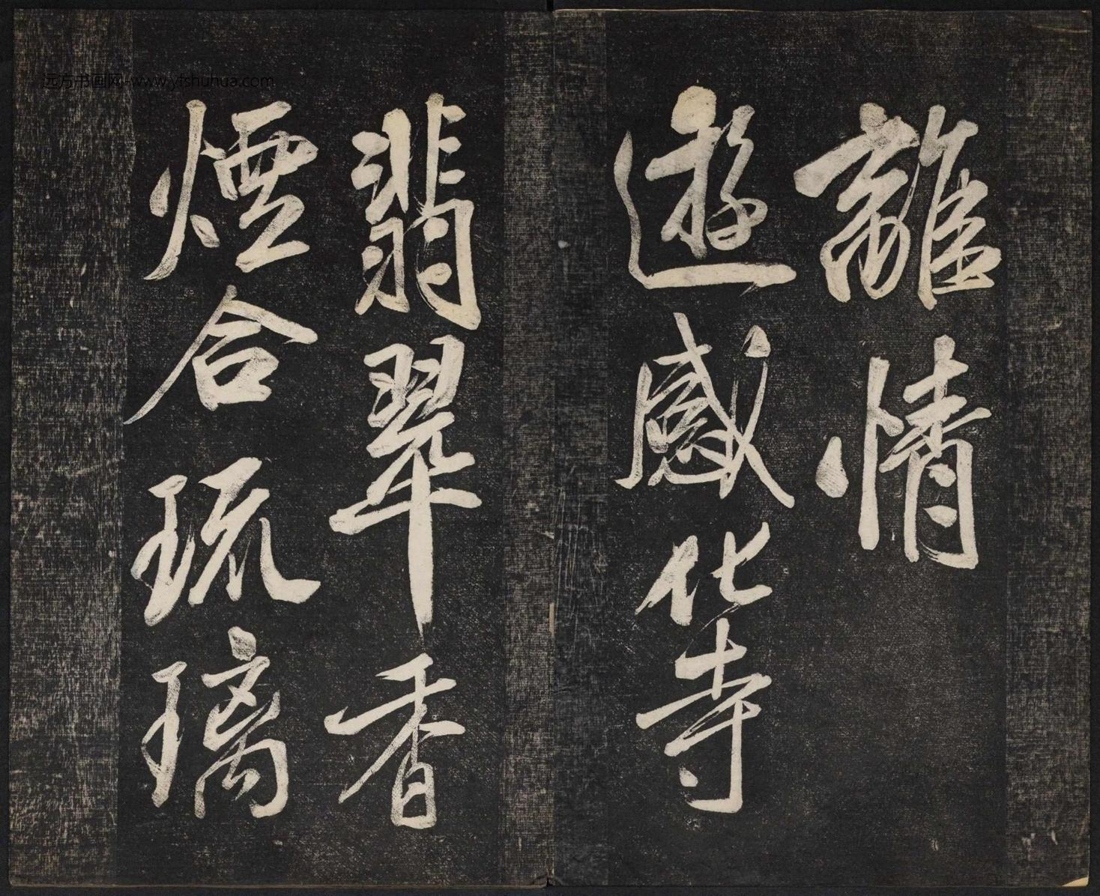 離情
遊感化寺
翡翠香
煙合琉璃
远方书画网 www.yfshuhua.com